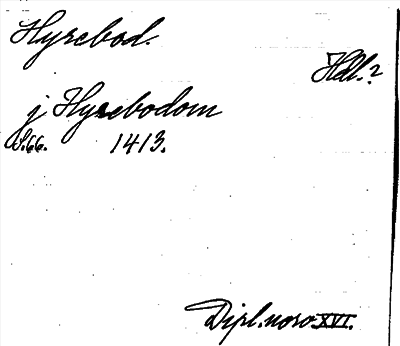 Hyrebod.
Hdl.?
j Hyrebodom
S.66. 1413.
Dipl. norv. XVI.